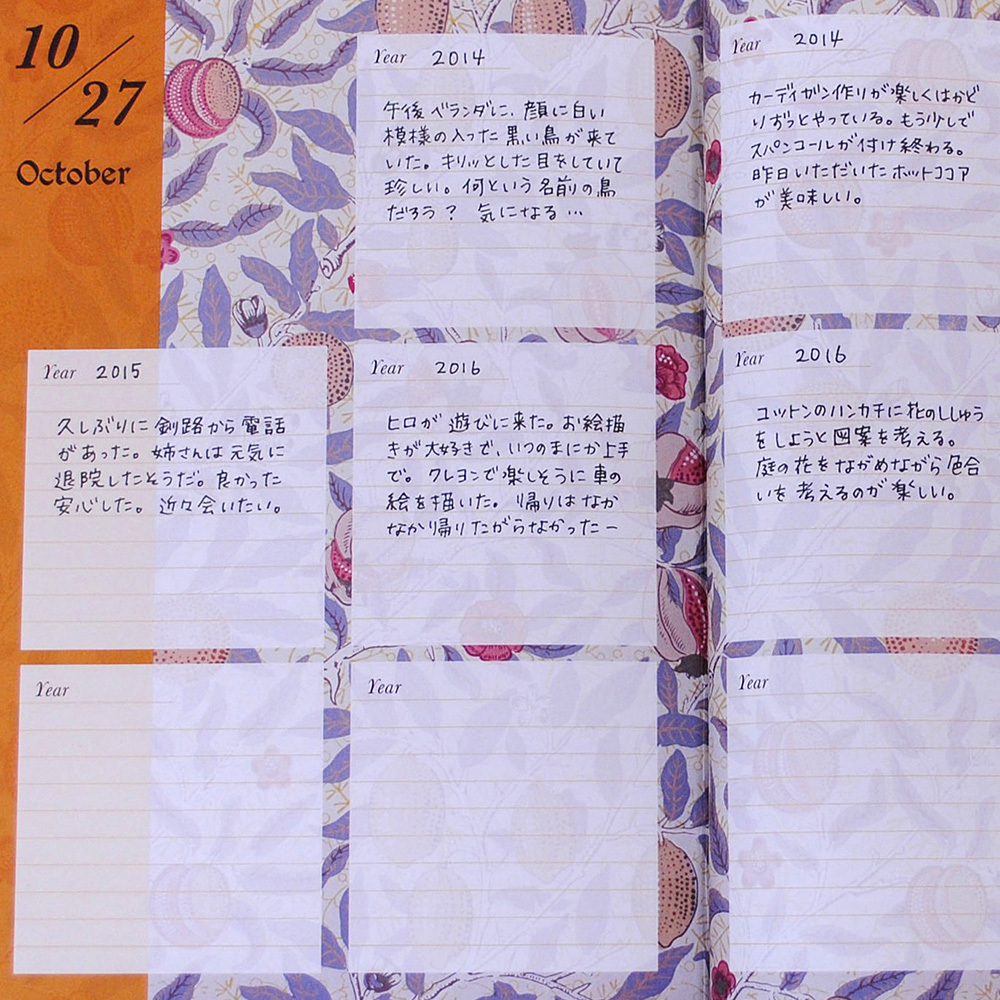 10/27
October
Year 2014
午後ベランダに、顔に白い
模様の入った黒い鳥が来て
いた。キリッとした目をしていて
珍しい。何という名前の鳥
だろう? 気になる…
Year 2015
久しぶりに釧路から電話
があった。姉さんは元気に
退院したそうだ。良かった
安心した。近々会いたい。
Year 2016
ヒロが遊びに来た。お絵描
きが大好きで、いつのまにか上手
で。クレヨンで楽しそうに車の
絵を描いた。帰りはなか
なか帰りたがらなかったー
Year
Year
Year 2014
カーディガン作りが楽しくはかど
りずっとやっている。もう少しで
スパンコールが付け終わる。
昨日いただいたホットココア
が美味しい。
Year 2016
コットンのハンカチに花のししゅう
をしようと図案を考える。
庭の花をながめながら色合
いを考えるのが楽しい。
Year